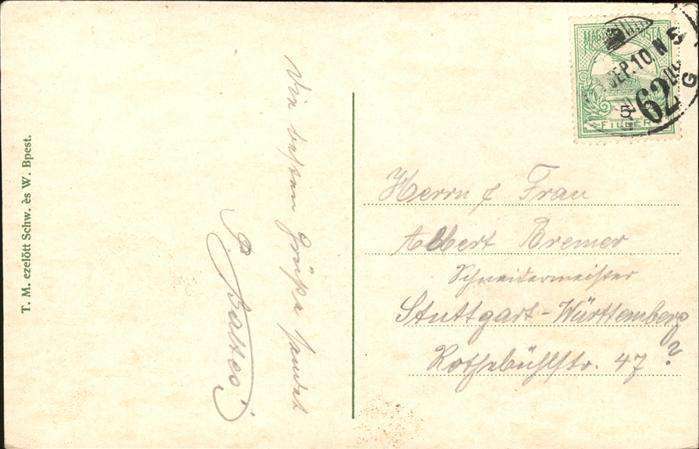 T. M. ezelőtt Schw. és W. Bpest.
Die besten Grüße sendet
MAGYAR
SEP. 10
N 5
62
5
FILLÉR
Herrn & Frau
Albert Bremer
Schneidermeister
Stuttgart-Württemberg
Rothebühlstr. 47 ?